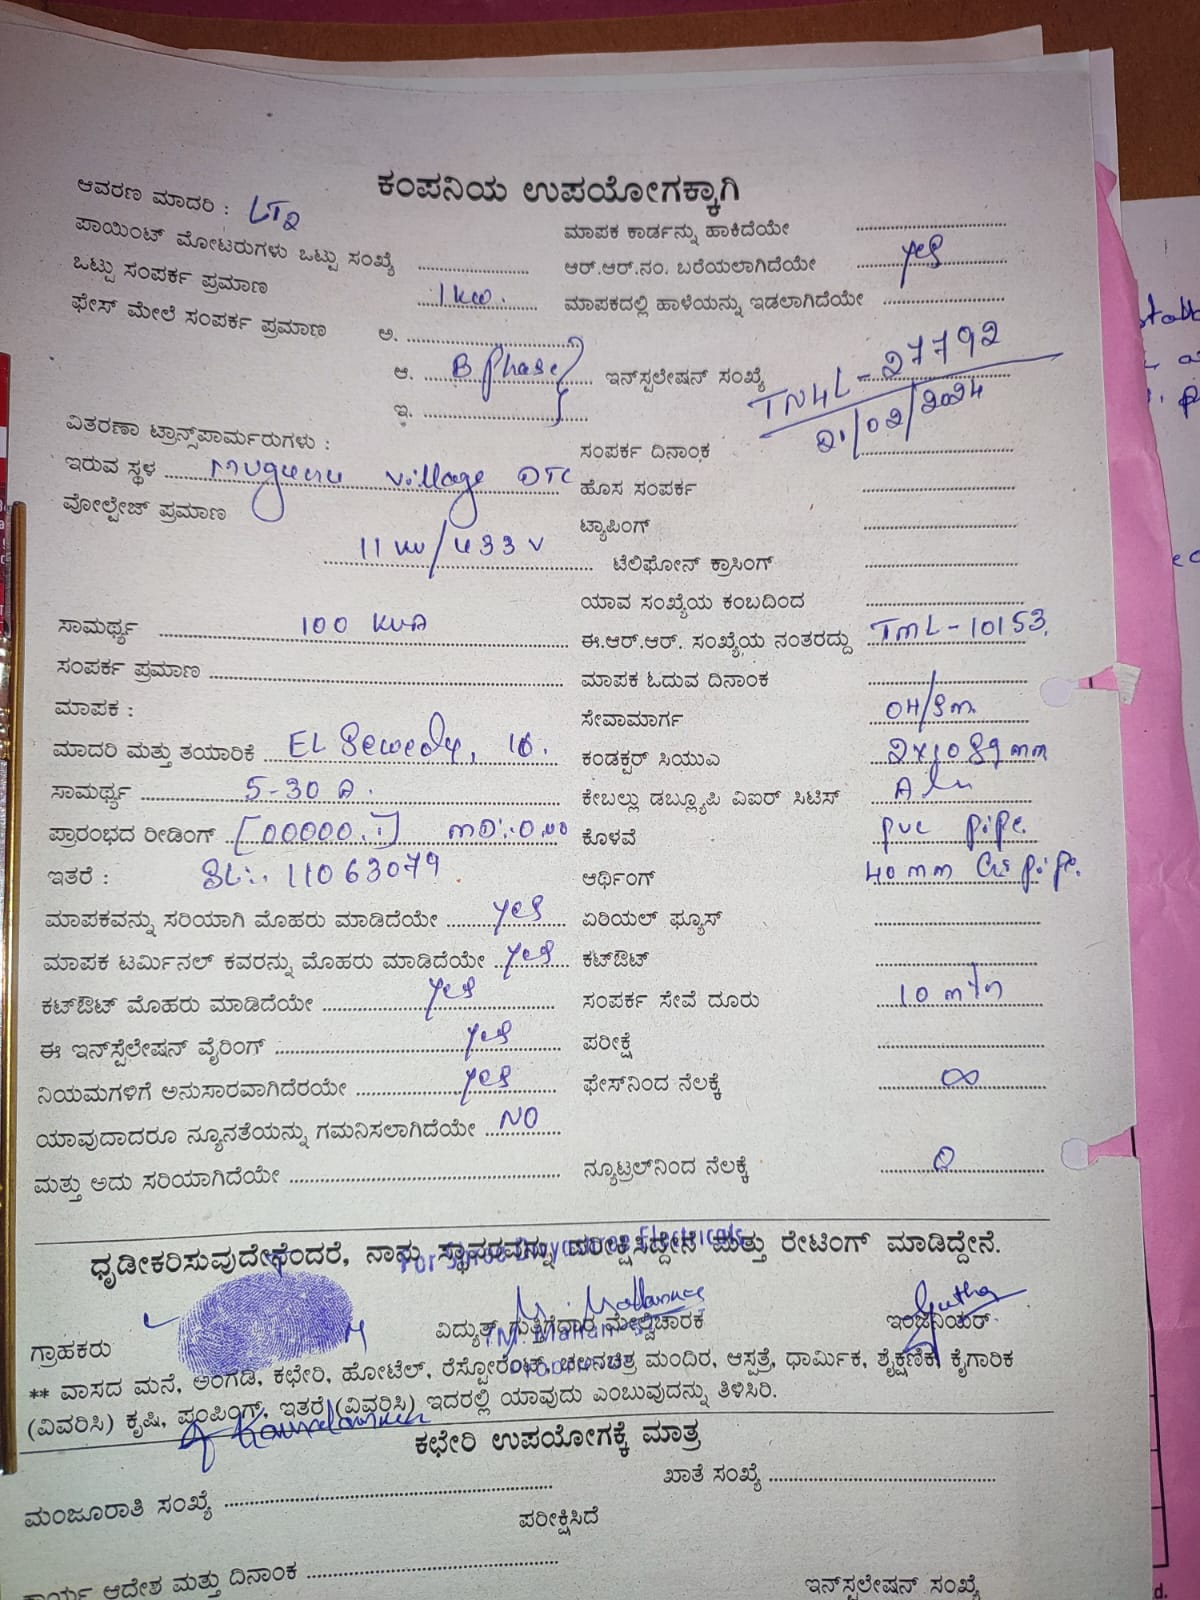 ಕಂಪನಿಯ ಉಪಯೋಗಕ್ಕಾಗಿ
ಆವರಣ ಮಾದರಿ : LT2
ಪಾಯಿಂಟ್ ಮೋಟರುಗಳು ಒಟ್ಟು ಸಂಖ್ಯೆ
ಒಟ್ಟು ಸಂಪರ್ಕ ಪ್ರಮಾಣ 1 kw.
ಫೇಸ್ ಮೇಲೆ ಸಂಪರ್ಕ ಪ್ರಮಾಣ ಅ.
ಆ. B Phase
ಇ.
ವಿತರಣಾ ಟ್ರಾನ್ಸ್‌ಪಾರ್ಮರುಗಳು :
ಇರುವ ಸ್ಥಳ village DTC
ವೋಲ್ಟೇಜ್ ಪ್ರಮಾಣ
11 kv/433 V
ಸಾಮರ್ಥ್ಯ 100 KVA
ಸಂಪರ್ಕ ಪ್ರಮಾಣ
ಮಾಪಕ :
ಮಾದರಿ ಮತ್ತು ತಯಾರಿಕೆ EL Sewedy,
ಸಾಮರ್ಥ್ಯ 5-30 A.
ಪ್ರಾರಂಭದ ರೀಡಿಂಗ್ [00000.1]
ಇತರೆ : SL:. 11063079
ಮಾಪಕವನ್ನು ಸರಿಯಾಗಿ ಮೊಹರು ಮಾಡಿದೆಯೇ yes
ಮಾಪಕ ಟರ್ಮಿನಲ್ ಕವರನ್ನು ಮೊಹರು ಮಾಡಿದೆಯೇ yes
ಕಟ್‌ಔಟ್ ಮೊಹರು ಮಾಡಿದೆಯೇ yes
ಈ ಇನ್‌ಸ್ಪೆಲೇಷನ್ ವೈರಿಂಗ್ yes
ನಿಯಮಗಳಿಗೆ ಅನುಸಾರವಾಗಿದೆರಯೇ yes
ಯಾವುದಾದರೂ ನ್ಯೂನತೆಯನ್ನು ಗಮನಿಸಲಾಗಿದೆಯೇ NO
ಮತ್ತು ಅದು ಸರಿಯಾಗಿದೆಯೇ
ಮಾಪಕ ಕಾರ್ಡನ್ನು ಹಾಕಿದೆಯೇ
ಆರ್.ಆರ್.ನಂ. ಬರೆಯಲಾಗಿದೆಯೇ yes
ಮಾಪಕದಲ್ಲಿ ಹಾಳೆಯನ್ನು ಇಡಲಾಗಿದೆಯೇ
ಇನ್‌ಸ್ಟಲೇಷನ್ ಸಂಖ್ಯೆ TN4L-27792
ಸಂಪರ್ಕ ದಿನಾಂಕ 21/02/2024
ಹೊಸ ಸಂಪರ್ಕ
ಟ್ಯಾಪಿಂಗ್
ಟೆಲಿಫೋನ್ ಕ್ರಾಸಿಂಗ್
ಯಾವ ಸಂಖ್ಯೆಯ ಕಂಬದಿಂದ
ಈ.ಆರ್.ಆರ್. ಸಂಖ್ಯೆಯ ನಂತರದ್ದು TML-10153.
ಮಾಪಕ ಓದುವ ದಿನಾಂಕ
ಸೇವಾಮಾರ್ಗ OH/Sm
ಕಂಡಕ್ಟರ್ ಸಿಯುಎ 2x10 Sqmm
ಕೇಬಲ್ಲು ಡಬ್ಲ್ಯೂಪಿ ವಿಐರ್ ಸಿಟಿಸ್ Alu
ಕೊಳವೆ pvc pipe.
ಆರ್ಥಿಂಗ್ 40mm GI pipe.
ಏರಿಯಲ್ ಫ್ಯೂಸ್
ಕಟ್‌ಔಟ್
ಸಂಪರ್ಕ ಸೇವೆ ದೂರು 10 mtr
ಪರೀಕ್ಷೆ
ಫೇಸ್‌ನಿಂದ ನೆಲಕ್ಕೆ ∞
ನ್ಯೂಟ್ರಲ್‌ನಿಂದ ನೆಲಕ್ಕೆ 0
ಧೃಡೀಕರಿಸುವುದೇನೆಂದರೆ, ನಾನು ಸ್ಥಾವರವನ್ನು ಪರೀಕ್ಷಿಸಿದ್ದೇನೆ ಮತ್ತು ರೇಟಿಂಗ್ ಮಾಡಿದ್ದೇನೆ.
ಗ್ರಾಹಕರು ವಿದ್ಯುತ್ ಗುತ್ತಿಗೆದಾರ ಮೇಲ್ವಿಚಾರಕ ಇಂಜಿನಿಯರ್
** ವಾಸದ ಮನೆ, ಅಂಗಡಿ, ಕಛೇರಿ, ಹೋಟೆಲ್, ರೆಸ್ಟೋರೆಂಟ್, ಚಲನಚಿತ್ರ ಮಂದಿರ, ಆಸ್ಪತ್ರೆ, ಧಾರ್ಮಿಕ, ಶೈಕ್ಷಣಿಕ, ಕೈಗಾರಿಕ
(ವಿವರಿಸಿ) ಕೃಷಿ, ಪಂಪಿಂಗ್, ಇತರೆ (ವಿವರಿಸಿ) ಇದರಲ್ಲಿ ಯಾವುದು ಎಂಬುವುದನ್ನು ತಿಳಿಸಿರಿ.
ಕಛೇರಿ ಉಪಯೋಗಕ್ಕೆ ಮಾತ್ರ
ಮಂಜೂರಾತಿ ಸಂಖ್ಯೆ ಖಾತೆ ಸಂಖ್ಯೆ
ಪರೀಕ್ಷಿಸಿದೆ
ಕಾರ್ಯ ಆದೇಶ ಮತ್ತು ದಿನಾಂಕ
ಇನ್‌ಸ್ಟಲೇಷನ್ ಸಂಖ್ಯೆ